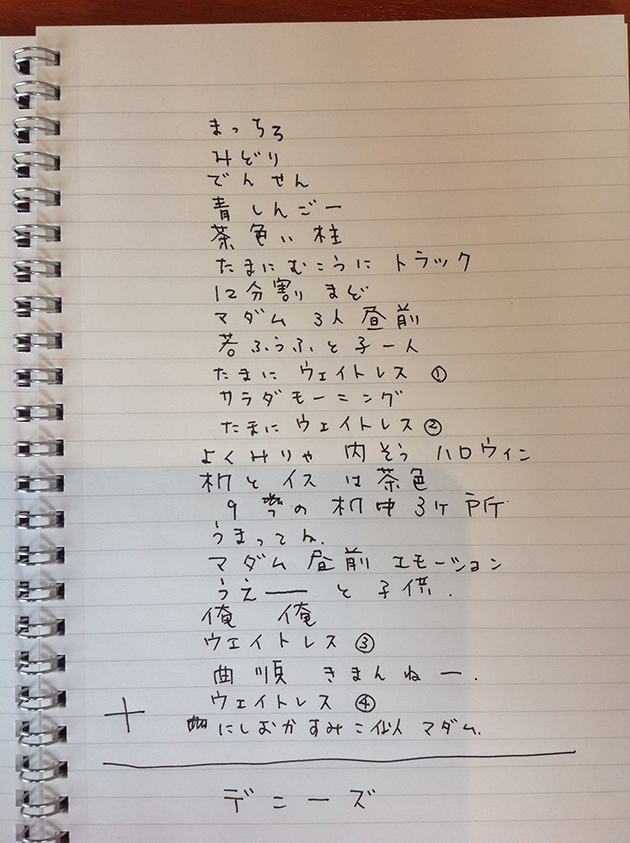 まっちろ
みどり
でんせん
青しんごー
茶色い柱
たまにむこうに トラック
12分割り まど
マダム 3人 昼前
若ふうふと子一人
たまに ウェイトレス ①
サラダモーニング
たまに ウェイトレス ②
よくみりゃ 内そう ハロウィン
机とイスは茶色
9つの 机中 3ヶ所
うまってん.
マダム 昼前 エモーション
うえーーと子供.
俺 俺
ウェイトレス ③
曲順 きまんねー.
ウェイトレス ④
+ にしおかすみこ似 マダム.
デニーズ